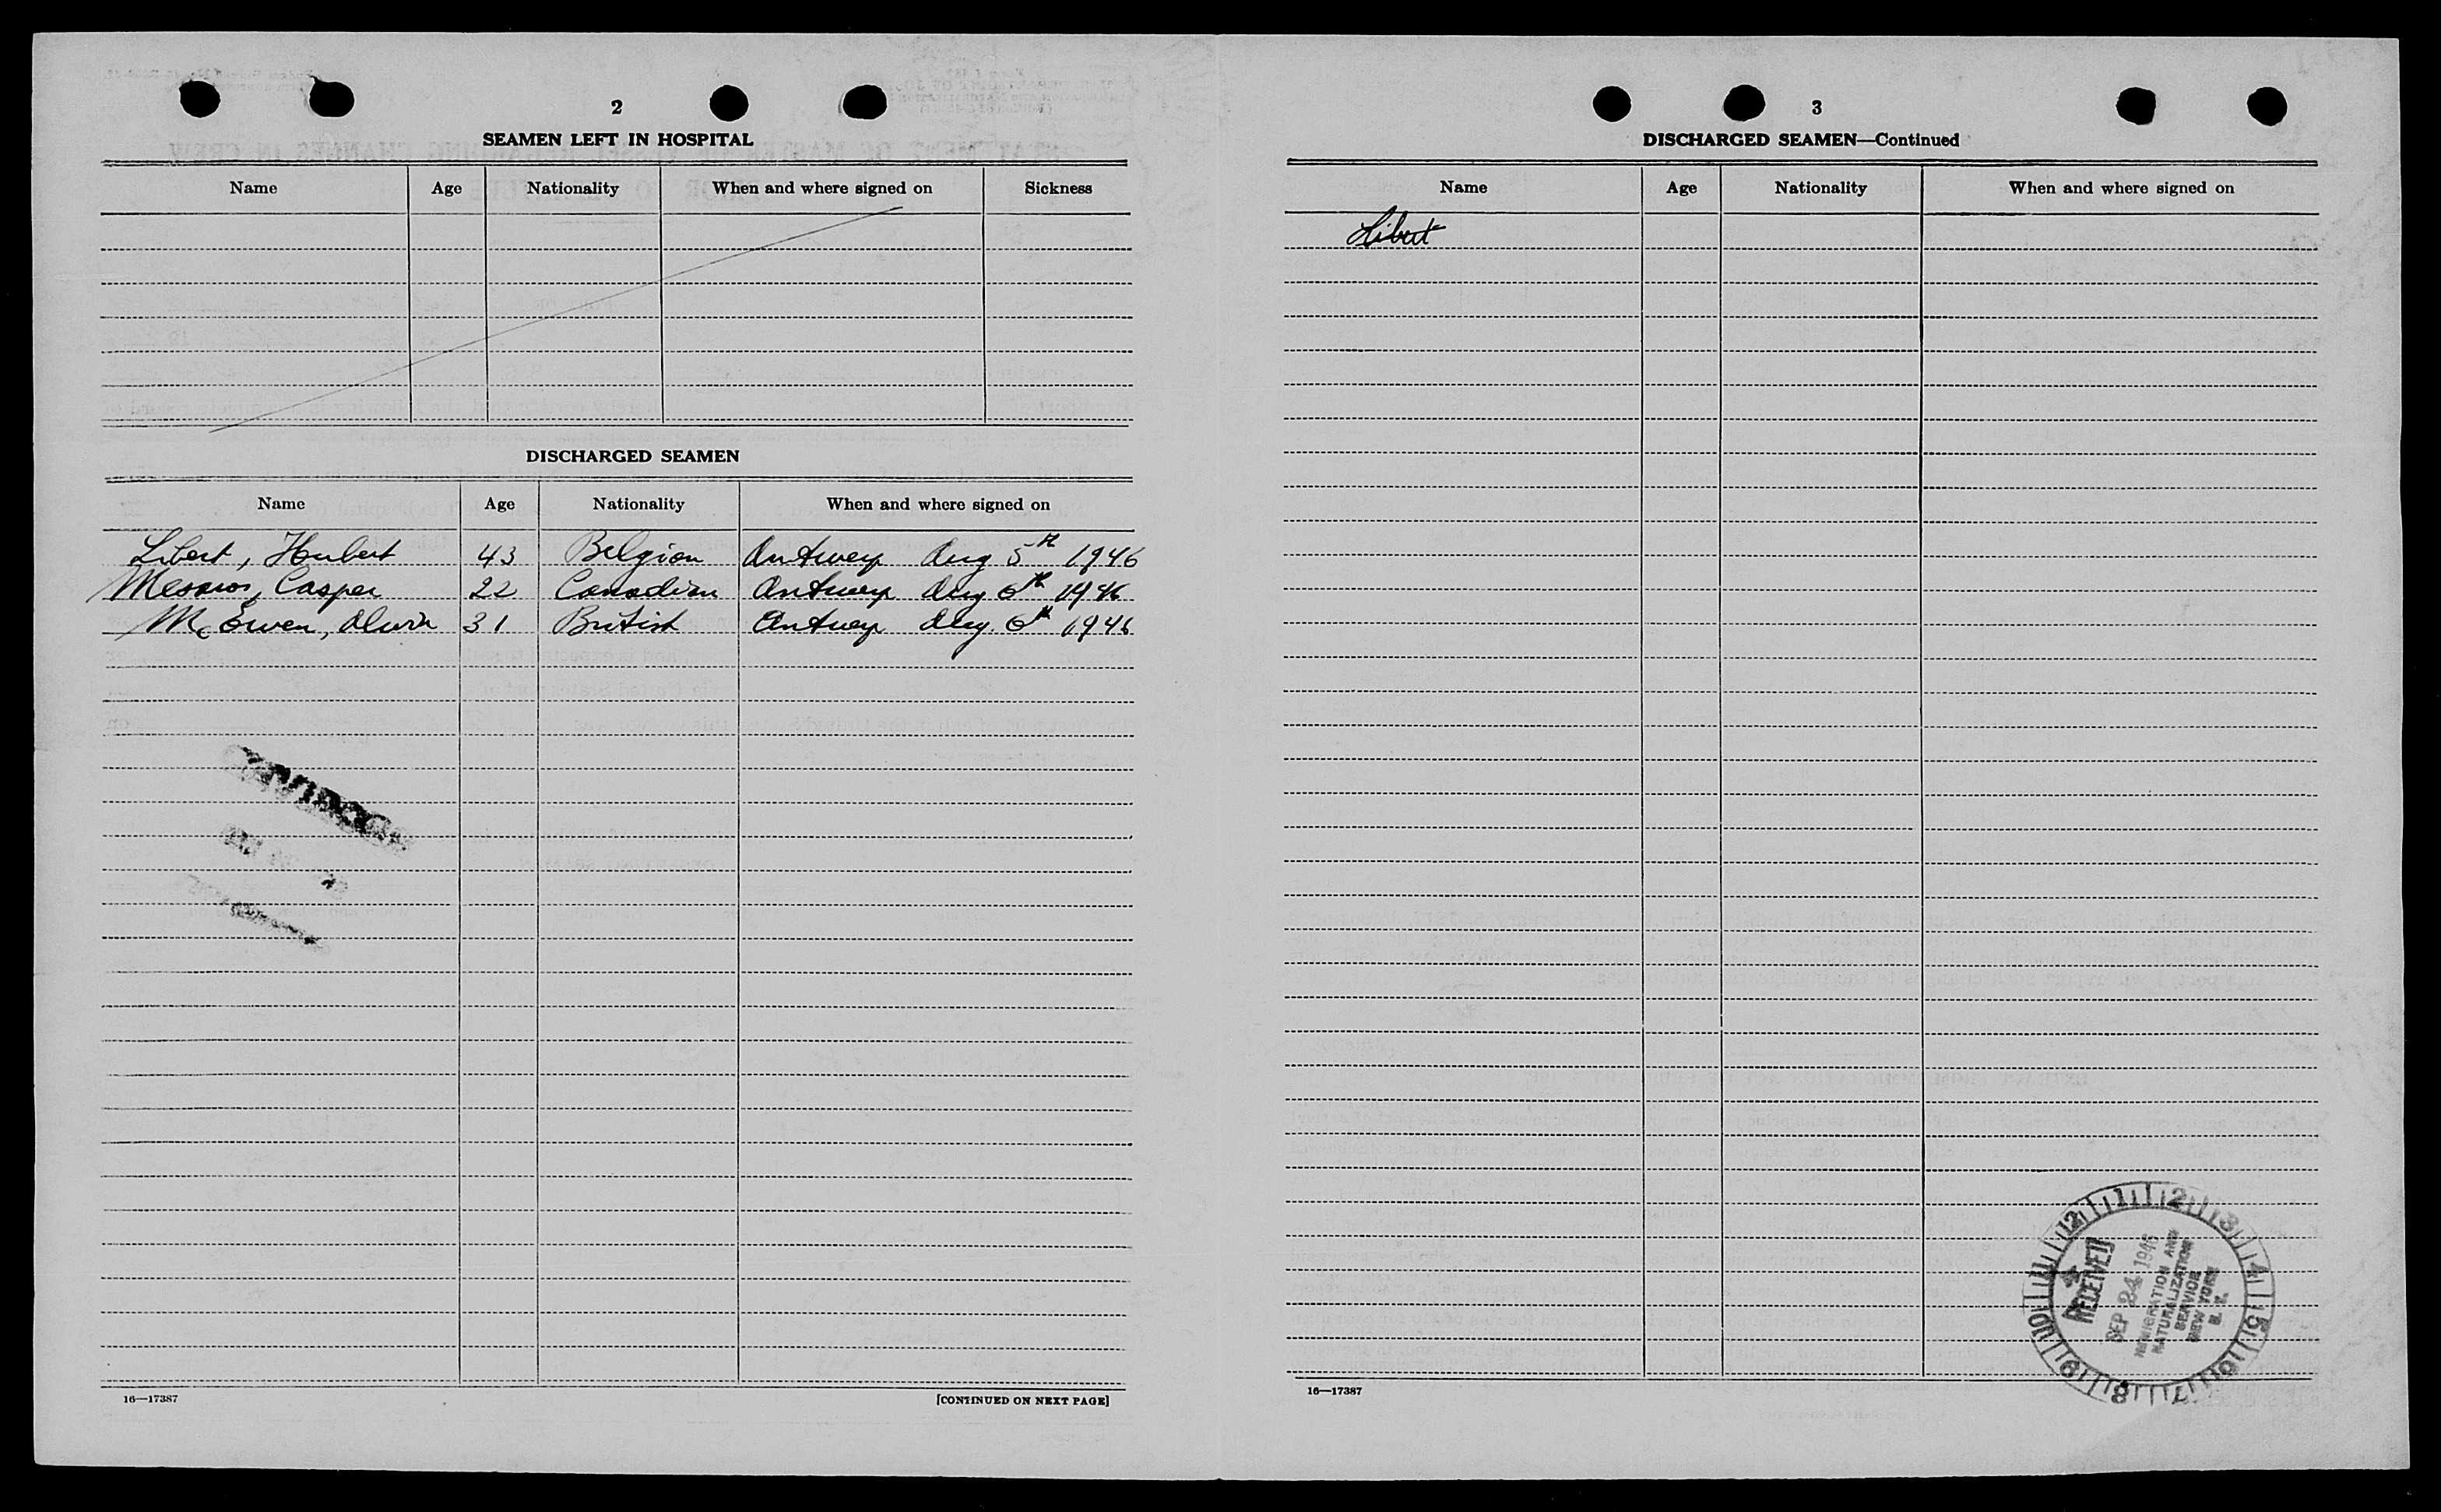 2
SEAMEN LEFT IN HOSPITAL
Name Age Nationality When and where signed on Sickness
DISCHARGED SEAMEN
Name Age Nationality When and where signed on
Libert, Hubert 43 Belgian Antwerp Aug 5th 1946
Casper 22 Canadian Antwerp Aug 6th 1946
McEwen, Alwin 31 British Antwerp Aug. 6th 1946
16—17387 [CONTINUED ON NEXT PAGE]
3
DISCHARGED SEAMEN—Continued
Name Age Nationality When and where signed on
Libert
12 1 2 3 4 5 6 7 8 9 10 11
RECEIVED
SEP 24 1946
IMMIGRATION AND
NATURALIZATION
SERVICE
NEW YORK
N. Y.
16—17387